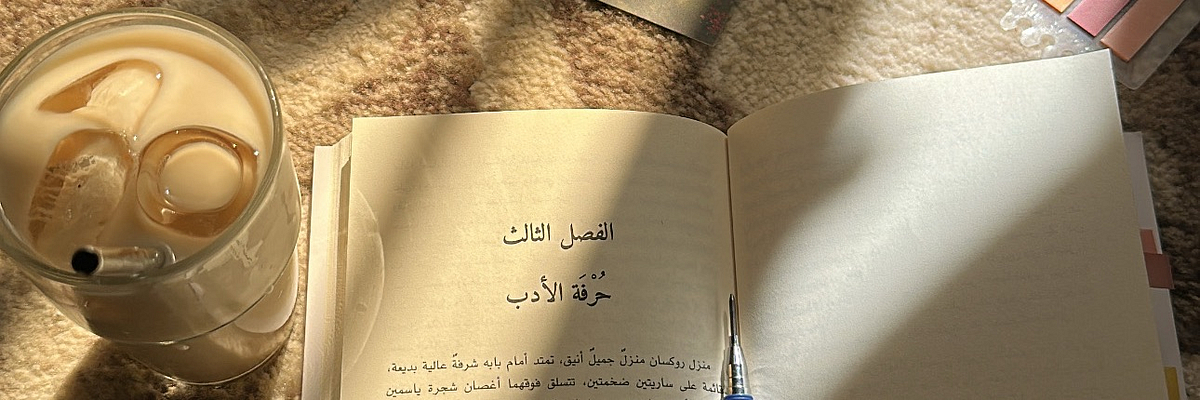 الفصل الثالث
حُرْفَة الأدب
منزل روكسان منزلٌ جميلٌ أنيق، تمتد أمام بابه شرفةٌ عالية بديعة،
قائمة على ساريتين ضخمتين، تتسلق فوقهما أغصان شجرة ياسمين